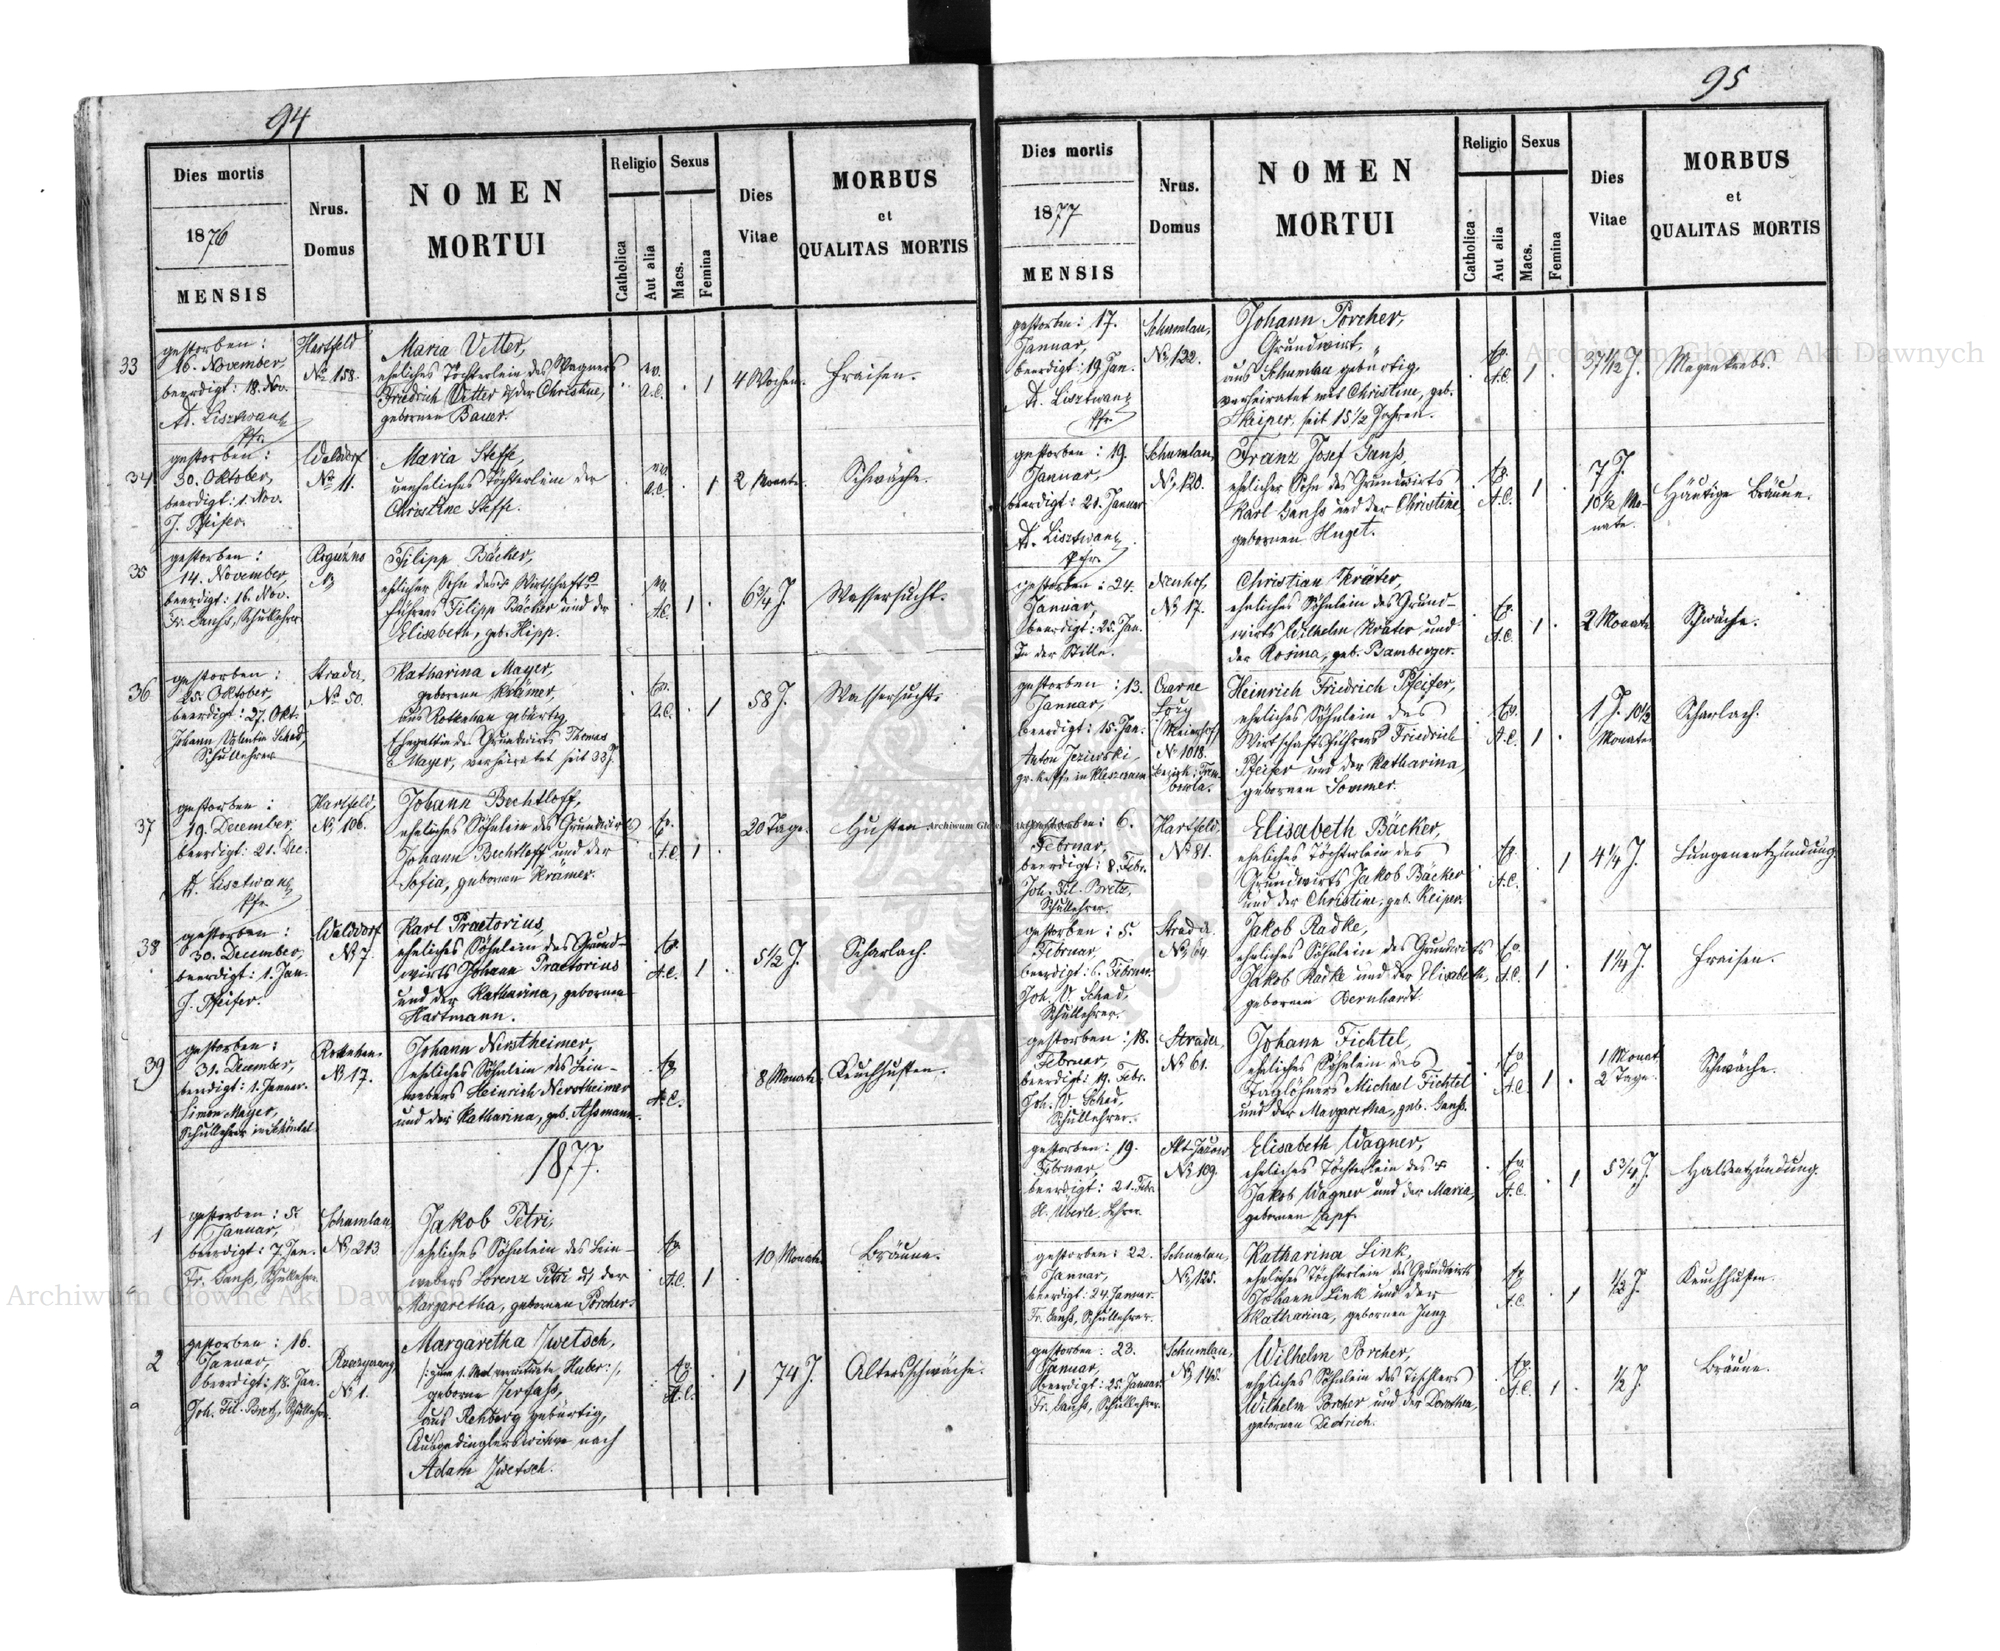 94
Dies mortis
1876
MENSIS
Nrus.
Domus
NOMEN
MORTUI
Religio
Catholica
Aut alia
Sexus
Macs.
Femina
Dies
Vitae
MORBUS
et
QUALITAS MORTIS
33
gestorben:
16. November,
beerdigt: 18. Nov.
A. Lisztwan
Pfr.
Hartfeld
No 158.
Maria Vetter,
eheliches Töchterlein des Wagners
Friedrich Vetter u. der Christine,
gebornen Bauer.
Ev.
A.C.
1
4 Wochen.
Fraisen.
34
gestorben:
30. Oktober,
beerdigt: 1. Nov.
J. Pfeifer.
Walddorf
No 11.
Maria Steffe,
uneheliches Töchterlein der
Christine Steffe.
Ev.
A.C.
1
2 Monate.
Schwäche.
35
gestorben:
14. November,
beerdigt: 16. Nov.
Fr. Ganss, Schullehrer
No
Filipp Bäcker,
ehelicher Sohn des Wirtschafts-
führers Filipp Bäcker und der
Elisabeth, geb. Hipp.
Ev.
A.C.
1
6 3/4 J.
Wassersucht.
36
gestorben:
25. Oktober,
beerdigt: 27. Okt.
Johann Valentin Schad,
Schullehrer
Strada,
No 50.
Katharina Mayer,
geborene Krämer,
aus Rottenhan gebürtig
Ehegattin des Grundwirts Thomas
Mayer, verheiratet seit 33 J.
Ev.
A.C.
1
58 J.
Wassersucht.
37
gestorben:
19. December,
beerdigt: 21. Dec.
A. Lisztwan
Pfr.
Hartfeld,
No 106.
Johann Bechtloff,
eheliches Söhnlein des Grundwirts
Johann Bechtloff und der
Sofia, gebornen Krämer.
Ev.
A.C.
1
20 Tage.
Husten
38
gestorben:
30. December,
beerdigt: 1. Jan.
J. Pfeifer.
Walddorf
No 7.
Karl Praetorius,
eheliches Söhnlein des Grund-
wirts Johann Praetorius
und der Katharina, gebornen
Hartmann.
Ev.
A.C.
1
5 1/2 J.
Scharlach.
39
gestorben:
31. December,
beerdigt: 1. Januar.
Simon Mayer,
Schullehrer in Schöntal
Rottenhan
No 17.
Johann Nirstheimer,
eheliches Söhnlein des Lein-
webers Heinrich Nirstheimer
und der Katharina, geb. Assmann.
Ev.
A.C.
8 Monate
Keuchhusten.
1877.
1
gestorben: 5.
Januar,
beerdigt: 7. Jan.
Fr. Ganss, Schullehrer
Schumlau
No 213
Jakob Petri,
eheliches Söhnlein des Lein-
webers Lorenz Petri u. der
Margaretha, gebornen Porcher.
Ev.
A.C.
1
10 Monate
Bräune.
2
gestorben: 16.
Januar,
beerdigt: 18. Jan.
Joh. Fil. Bretz, Schullehrer.
No 1.
Margaretha Zwetsch,
/: zum 1. Mal verwitwete Huber :/,
geborne Zerfass,
aus Rehberg gebürtig,
Ausgedinglerswitwe nach
Adam Zwetsch.
Ev.
A.C.
1
74 J.
Altersschwäche.
95
Dies mortis
1877
MENSIS
Nrus.
Domus
NOMEN
MORTUI
Religio
Catholica
Aut alia
Sexus
Macs.
Femina
Dies
Vitae
MORBUS
et
QUALITAS MORTIS
gestorben: 17.
Januar,
beerdigt: 19 Jan.
A. Lisztwan
Pfr.
Schumlau,
No 122.
Johann Porcher,
Grundwirt,
aus Schumlau gebürtig,
verheiratet mit Christine, geb.
Keiper, seit 15 1/2 Jahren.
Ev.
A.C.
1
37 1/2 J.
Magenkrebs.
gestorben: 19.
Januar,
beerdigt: 21. Januar
A. Lisztwan
Pfr.
Schumlau,
No 120.
Franz Josef Ganss,
ehelicher Sohn des Grundwirts
Karl Ganss und der Christine
gebornen Huget.
Ev.
A.C.
1
7 J.
10 1/2 Mo-
nate.
Häutige Bräune.
gestorben: 24.
Januar,
beerdigt: 25. Jan.
In der Stille.
Neuhof,
No 17.
Christian Kräter,
eheliches Söhnlein des Grund-
wirts Wilhelm Kräter und
der Rosina, geb. Bamberger.
Ev.
A.C.
1
2 Monate
Schwäche.
gestorben: 13.
Januar,
beerdigt: 15. Jan.
Anton Jezierski,
Czarne
Łozy
Meierhof
No 1018.
Bezirk: Trem-
bowla.
Heinrich Friedrich Pfeifer,
eheliches Söhnlein des
Wirtschaftsführers Friedrich
Pfeifer und der Katharina,
gebornen Sommer.
Ev.
A.C.
1
1 J. 10 1/2
Monate
Scharlach.
gestorben: 6.
Februar,
beerdigt: 8. Febr.
Joh. Fil. Bretz,
Schullehrer.
Hartfeld,
No 81.
Elisabeth Bäcker,
eheliches Töchterlein des
Grundwirts Jakob Bäcker
und der Christine, geb. Keiper.
Ev.
A.C.
1
4 1/4 J.
Lungenentzündung.
gestorben: 5.
Februar,
beerdigt: 6. Februar.
Joh. V. Schad,
Schullehrer.
Strada
No 64
Jakob Radke,
eheliches Söhnlein des Grundwirts
Jakob Radke und der Elisabeth,
gebornen Bernhardt.
Ev.
A.C.
1
1 1/4 J.
Fraisen.
gestorben: 18.
Februar,
beerdigt: 19. Febr.
Joh. V. Schad,
Schullehrer.
Strada,
No 61.
Johann Fichtel,
eheliches Söhnlein des
Taglöhners Michael Fichtel
und der Margaretha, geb. Ganss.
Ev.
A.C.
1
1 Monat
2 Tage.
Schwäche.
gestorben: 19.
Februar,
beerdigt: 21. Febr.
Lehrer
Alt-Jazow
No 109.
Elisabeth Wagner,
eheliches Töchterlein des
Jakob Wagner und der Maria,
gebornen Zapf.
Ev.
A.C.
1
5 3/4 J.
Halsentzündung.
gestorben: 22.
Januar,
beerdigt: 24 Januar.
Fr. Ganss, Schullehrer.
Schumlau,
No 125.
Katharina Link,
eheliches Töchterlein des Grundwirts
Johann Link und der
Katharina, gebornen Jung
Ev.
A.C.
1
1/2 J.
Keuchhusten.
gestorben: 23.
Januar,
beerdigt: 25. Januar.
Fr. Ganss, Schullehrer
Schumlau,
No 145.
Wilhelm Porcher,
eheliches Söhnlein des Tischlers
Wilhelm Porcher und der Dorothea,
gebornen Dietrich.
Ev.
A.C.
1
1/2 J.
Bräune.
Archiwum Główne Akt Dawnych
Archiwum Główne Akt Dawnych
Archiwum Główne Akt Dawnych